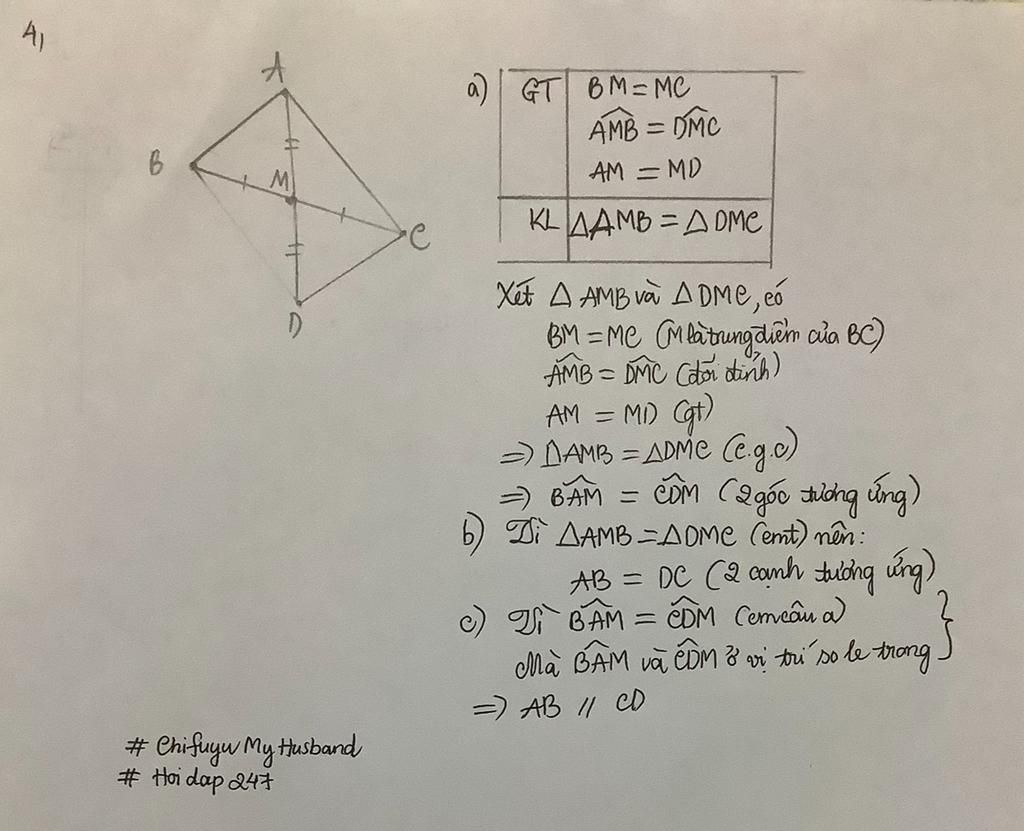 4,
A
B
M
C
D
a) GT BM = MC
AMB̂ = DMĈ
AM = MD
KL ΔAMB = ΔDMC
Xét Δ AMB và Δ DMC, có
BM = MC (M là trung điểm của BC)
AMB̂ = DMĈ (đối đỉnh)
AM = MD (gt)
=> ΔAMB = ΔDMC (c.g.c)
=> BAM̂ = CDM̂ (2 góc tương ứng)
b) Vì ΔAMB = ΔDMC (cmt) nên:
AB = DC (2 cạnh tương ứng)
c) Vì BAM̂ = CDM̂ (cm câu a)
Mà BAM̂ và CDM̂ ở vị trí so le trong }
=> AB // CD
# Chifuyu My Husband
# Hoi dap 247